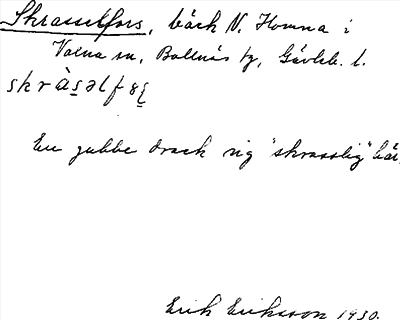 Skrasselfors, bäck N. Homna i
Voxna sn, Bollnäs tg, Gävleb. l.
En gubbe drack sig "skrasslig" här.
Erik Eriksson 1930.